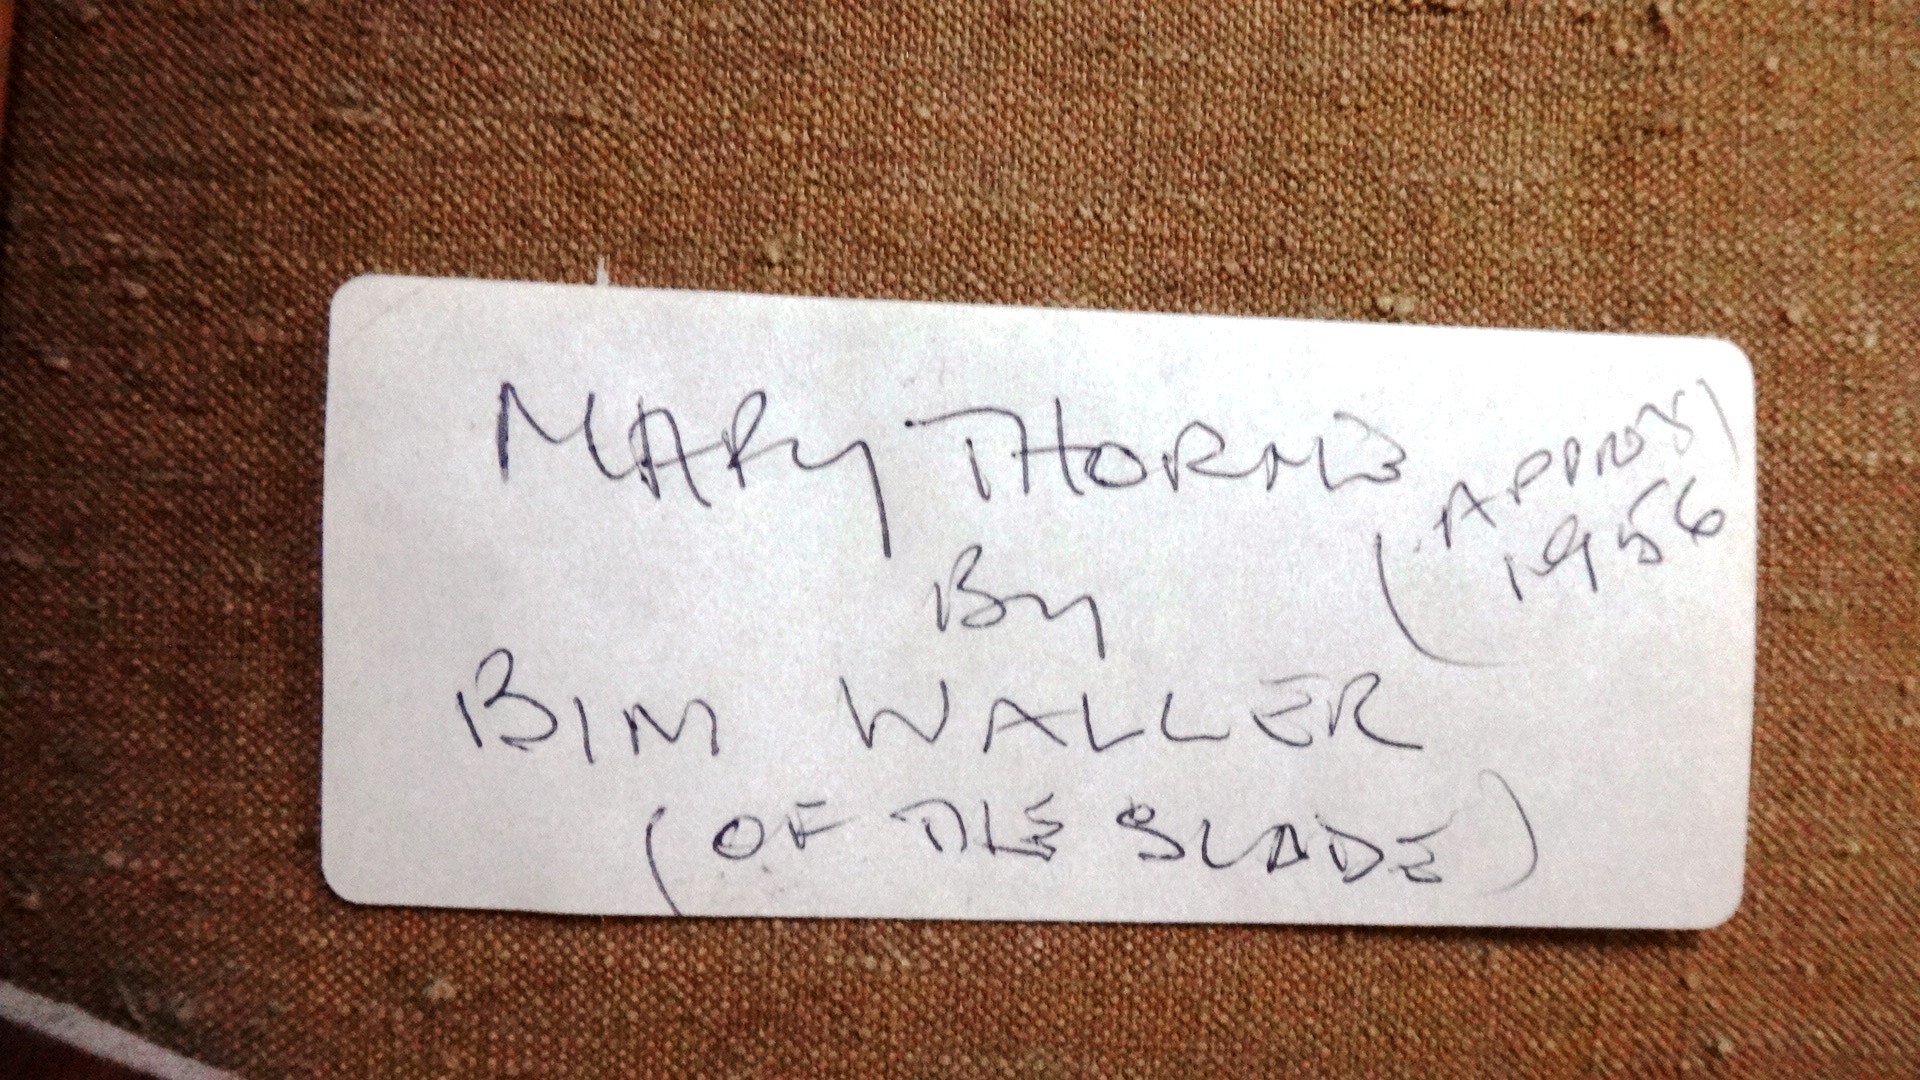 MARY THORNE
(APPROX)
1956
By
BIM WALLER
(OF THE SLADE)